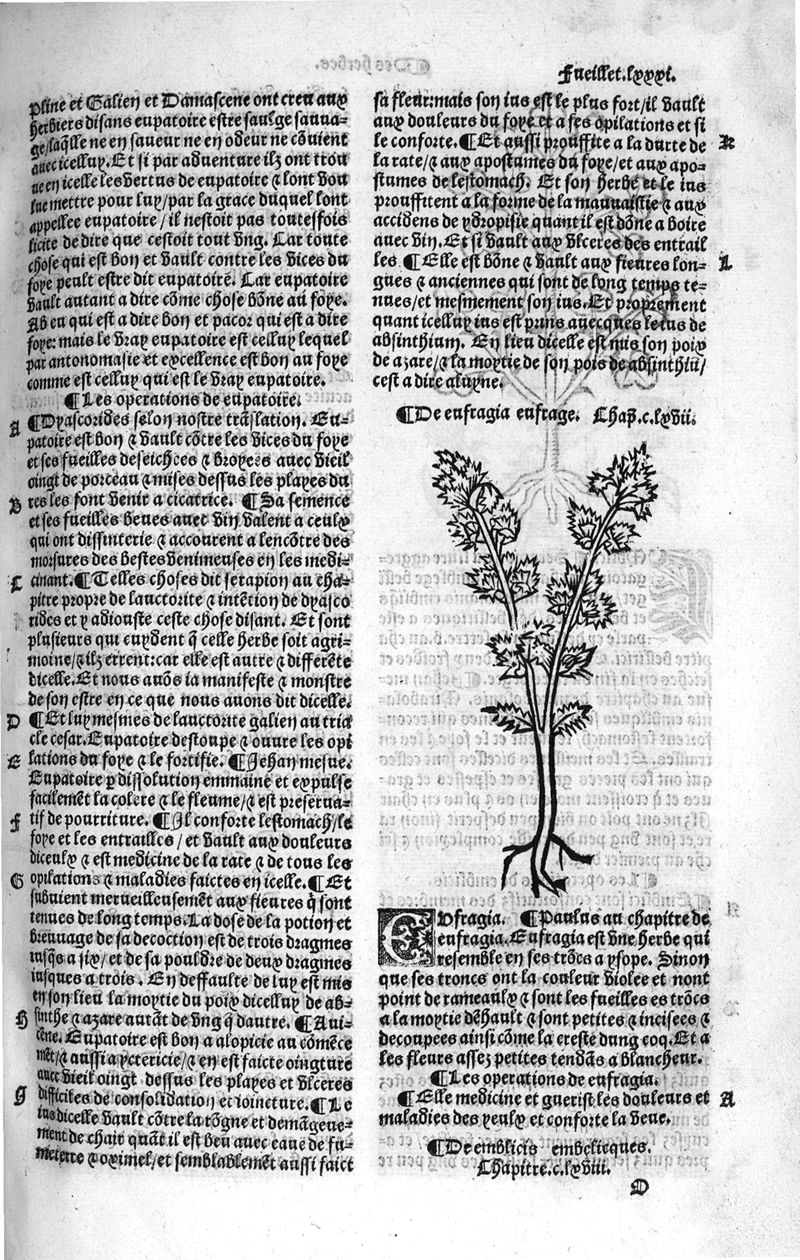 Fueillet.lxxxi.
pline et Galien et Damascene ont creu aux
herbiers disans eupatoire estre saulge sauua-
ge/laq̃lle ne en saueur ne en odeur ne cõuient
auec icelluy. Et si par aduenture ilz ont trou
ue en icelle les vertus de eupatoire ⁊ lont vou
lue mettre pour luy/par la grace duquel lont
appellee eupatoire/il nestoit pas toutesfois
licite de dire que cestoit tout vng. Car toute
chose qui est bon et vault contre les vices du
foye peult estre dit eupatoire. Car eupatoire
vault autant a dire cõme chose bõne au foye.
Ab eu qui est a dire bon et pacor qui est a dire
foye: mais le vray eupatoire est celluy lequel
par antonomasie et excellence est bon au foye
comme est celluy qui est le vray eupatoire.
¶Les operations de eupatoire.
A ¶Dyascorides selon nostre trãslation. Eu-
patoire est bon ⁊ vault cõtre les vices du foye
et ses fueilles deseichees ⁊ broyees auec vieil
oingt de porceau ⁊ mises dessus les playes du
B res les font venir a cicatrice. ¶Sa semence
et ses fueilles beues auec vin valent a ceulx
qui ont dissinterie ⁊ accourent a lencõtre des
morsures des bestes venimeuses en les medi-
C cinant.¶Telles choses dit serapion au cha-
pitre propre de lauctorite ⁊ intẽtion de dyasco
rides et y adiouste ceste chose disant. Et sont
plusieurs qui cuydent q̃ celle herbe soit agri-
moine/⁊ ilz errent:car elle est autre ⁊ differẽte
dicelle. Et nous auõs ia manifeste ⁊ monstre
de son estre en ce que nous auons dit dicelle.
D ¶Et luy mesmes de lauctorite galien au tria
cle cesar. Eupatoire destoupe ⁊ ouure les opi
E lations du foye ⁊ le fortifie. ¶Jehan mesue.
Eupatoire ꝑ dissolution emmaine et expulse
facilemẽt la colere ⁊ le fleume/⁊ est preserua-
F tif de pourriture. ¶Il conforte lestomach/le
foye et les entrailles/et vault aux douleurs
diceulx ⁊ est medicine de la rate ⁊ de tous les
G opilations ⁊ maladies faictes en icelle.¶Et
subuient merueilleusemẽt aux fieures q̃ sont
tenues de long temps. La dose de la potion et
breuuage de sa decoction est de trois dragmes
iusq̃s a six/et de sa pouldre de deux dragmes
iusques a trois. En deffaulte de luy est mis
en son lieu la moytie du poix dicelluy de ab-
H sinthe ⁊ azare autãt de vng q̃ dautre. ¶Aui-
cene. Eupatoire est bon a alopicie au cõmẽce
mẽt/⁊ aussi a yctericie/⁊ en est faicte oingture
auec vieil oingt dessus les playes et vlceres
I difficiles de consolidation et ioincture.¶Le
ius dicelle vault cõtre la rõgne et demãgeue-
ment de chair quãt il est beu auec eaue de fu-
meterre ⁊ oximel/et semblablemẽt aussi faict
sa fleur:mais son ius est le plus fort/il vault
aux douleurs du foye et a ses opilations et si
le conforte.¶Et aussi prouffite a la durte de K
la rate/⁊ aux apostumes du foye/et aux apo-
stumes de lestomach. Et son herbe et le ius
prouffitent a la forme de la mauuaistie ⁊ aux
accidens de ydropisie quant il est dõne a boire
auec vin. Et si vault aux vlceres des entrail
les.¶Elle est bõne ⁊ vault aux fieures lon- L
gues ⁊ anciennes qui sont de long temps te-
nues/et mesmement son ius. Et proprement
quant icelluy ius est prins auecques le ius de
absinthium. En lieu dicelle est mis son poix
de azare/⁊ la moytie de son pois de absinthiũ/
cest a dire aluyne.
¶De eufragia eufrage. Chap̃.c.lxvii.
EUfragia. ¶Paulus au chapitre de
eufragia. Eufragia est vne herbe qui
resemble en ses trõcs a ysope. Sinon
que ses troncs ont la couleur violee et nont
point de rameaulx ⁊ sont les fueilles es trõcs
a la moytie dẽhault ⁊ sont petites ⁊ incisees ⁊
decoupees ainsi cõme la creste dung coq. Et a
les fleurs assez petites tendãs a blancheur.
¶Les operations de eufragia.
¶Elle medicine et guerist les douleurs et A
maladies des yeulx et conforte la veue.
¶De emblicis embelicques.
Chapitre.c.lxviii.
O